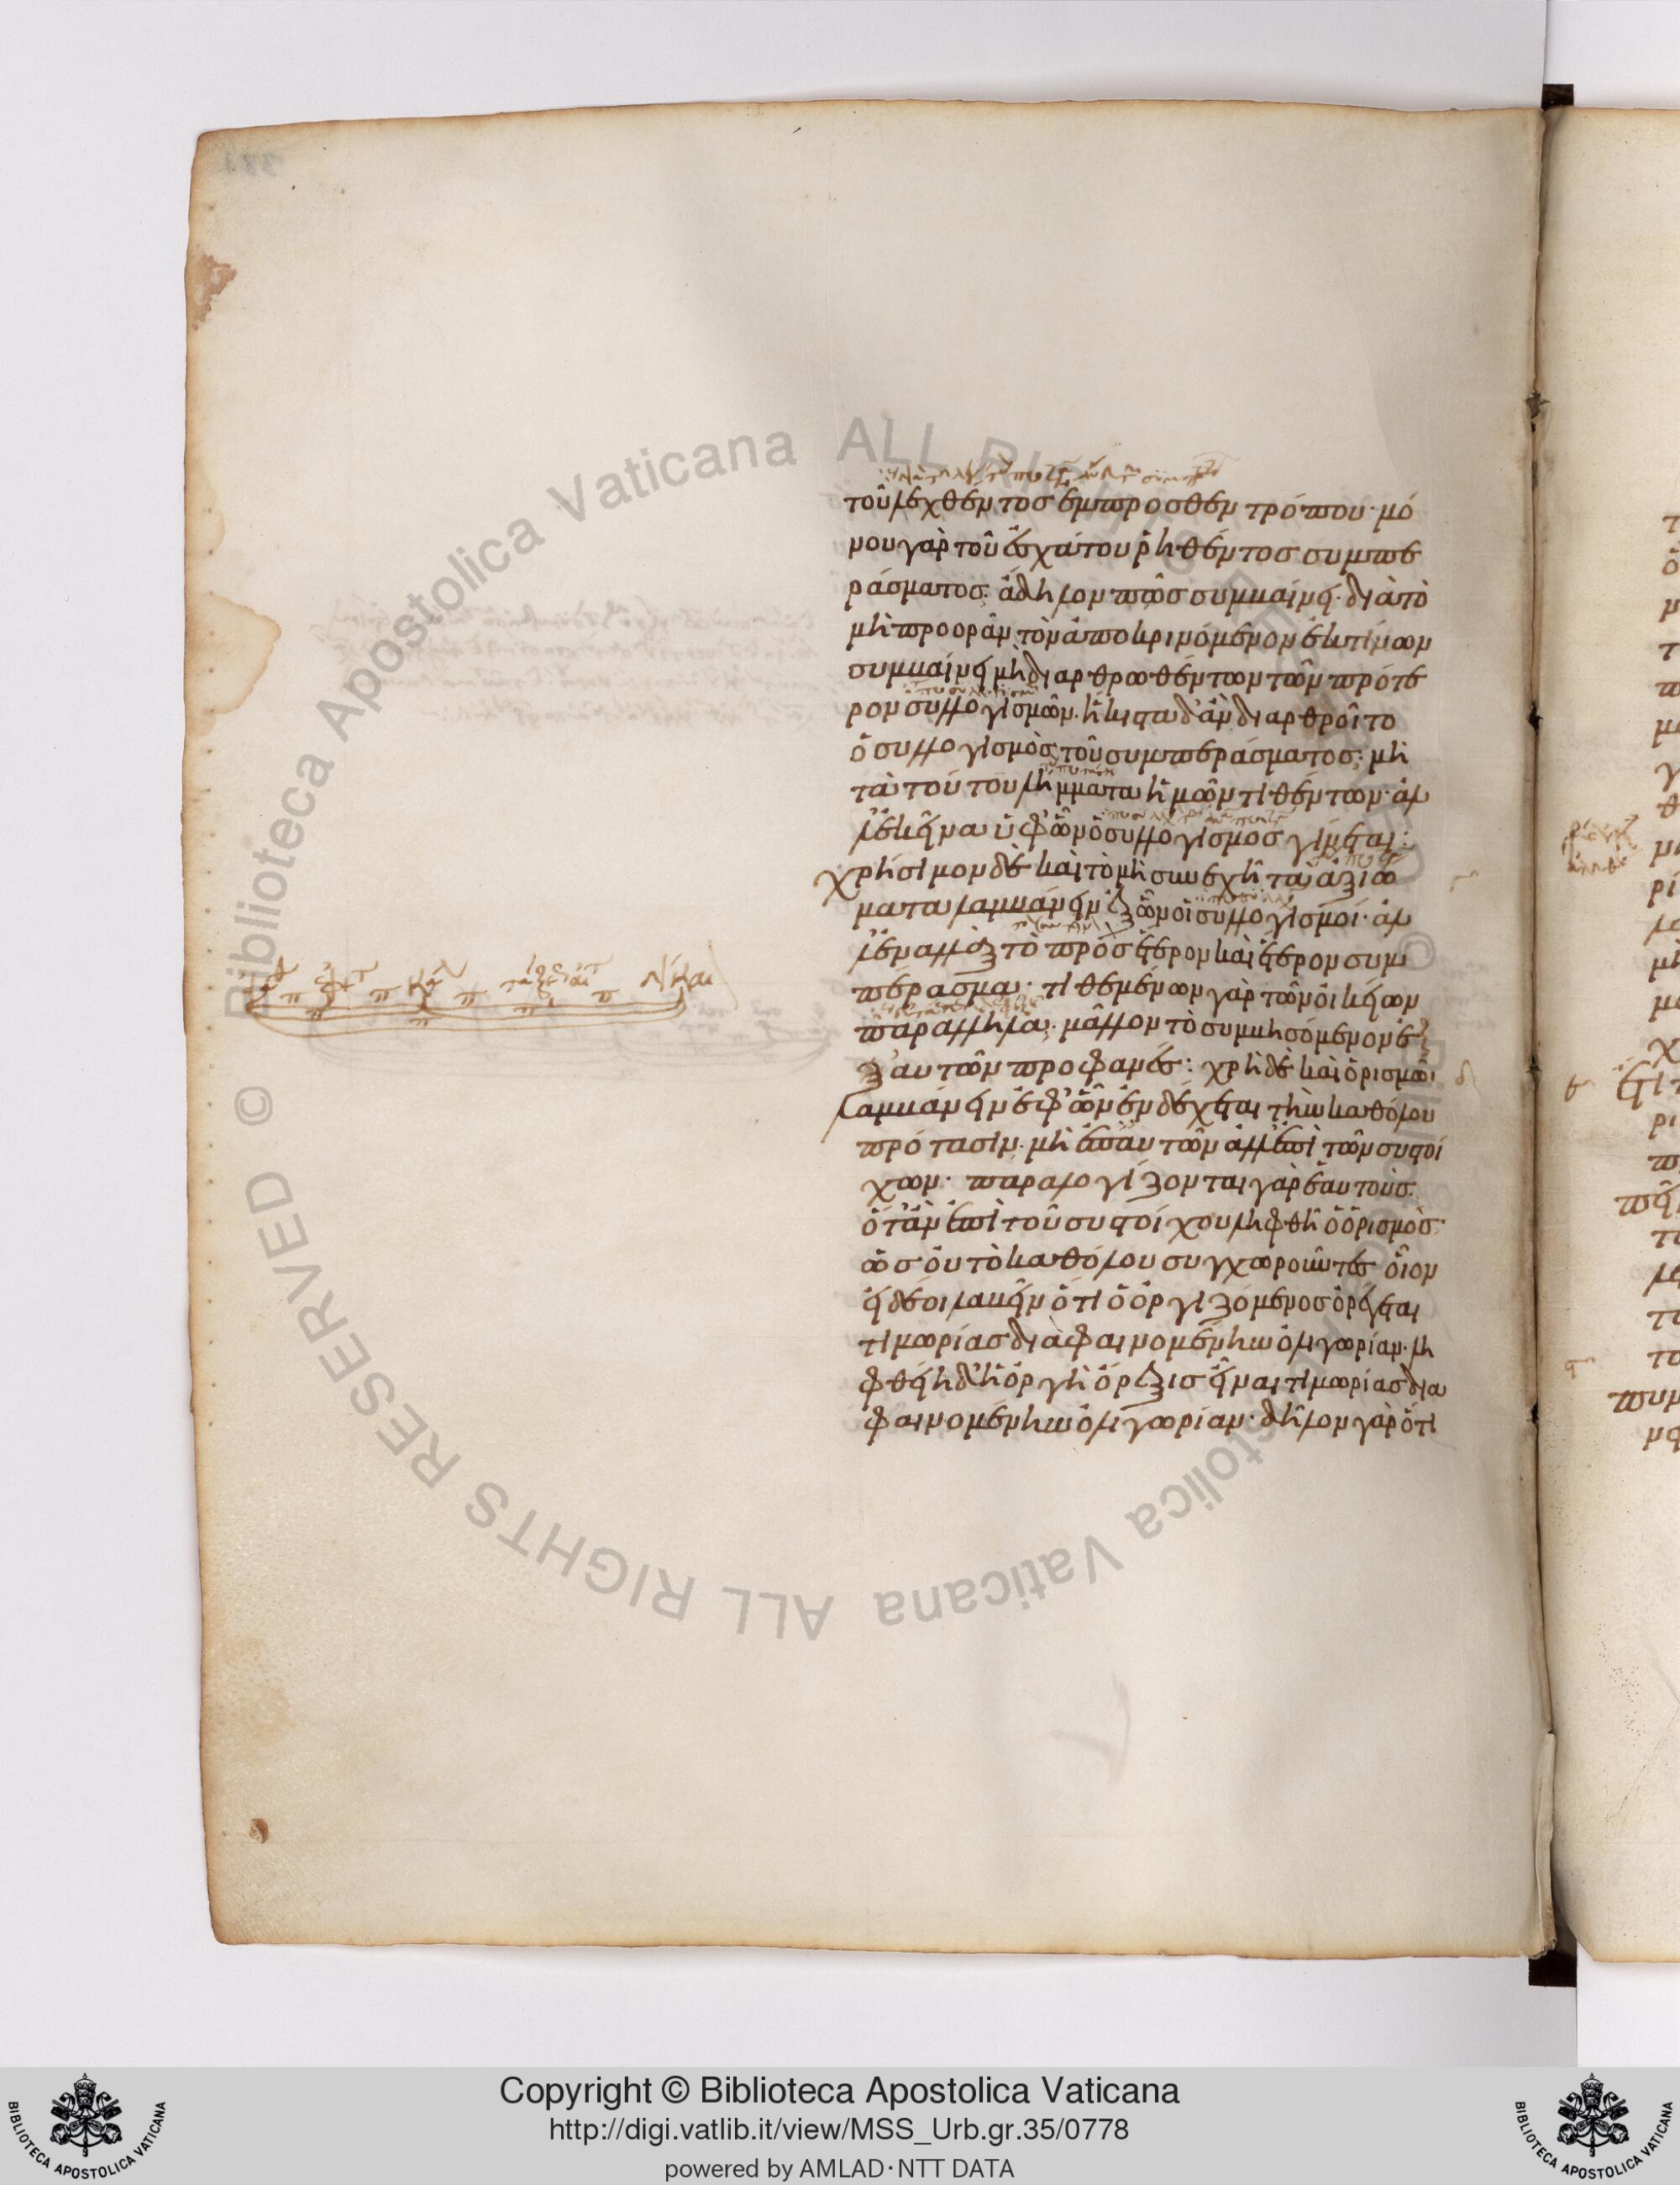 τοῦ λεχθέντος ἔμπροσθεν τρόπου· μό
νου γὰρ τοῦ ἐσχάτου ῥηθέντος συμπε
ράσματος. ἄδηλον πῶς συμβαίνει· διὰ τὸ
μὴ προορᾶν τὸν ἀποκρινόμενον ἐκ τίνων
συμβαίνει μὴ διαρθρωθέντων τῶν πρότε
ρον συλλογισμῶν. ἥκιστα δ' ἂν διαρθροῖτο
ὁ συλλογισμὸς τοῦ συμπεράσματος· μὴ
τὰ τούτου λήμματα ἡμῶν τιθέντων· ἀλ
λ' ἐκεῖνα ὑφ' ὧν ὁ συλλογισμος γίνεται:
χρήσιμον δὲ καὶ τὸ μὴ συνεχῆ τὰ ἀξιώ
ματα λαμβάνειν ἐξ ὧν οἱ συλλογισμοί· ἀλ
λ' ἐναλλὰξ τὸ πρὸς ἕτερον καὶ ἕτερον συμ
πέρασμα· τιθεμένων γὰρ τῶν οἰκείων
παράλληλα· μᾶλλον τὸ συμβησόμενον ἐ
ξ αὐτῶν προφανές: χρὴ δὲ καὶ ὁρισμῶι
λαμβάνειν ἐφ' ὧν ἐνδέχεται τὴν καθόλου
πρότασιν· μὴ ἐπ' αὐτῶν ἀλλ' ἐπὶ τῶν συστοί
χων· παραλογίζονται γὰρ ἑαυτοὺς.
ὅτ' ἂν ἐπὶ τοῦ συστοίχου ληφθῆ ὁ ὁρισμὸς·
ὡς οὐ τὸ καθόλου συγχωροῦντες οἷον
εἰ δέοι λαβεῖν ὅτι ὁ ὀργιζόμενος ὀρέγεται
τιμωρίας διὰ φαινομένην ὀλιγωρίαν· λη
φθείη δ' ἡ ὀργὴ ὄρεξις εἶναι τιμωρίας δια
φαινομένην ὀλιγωρίαν· δῆλον γὰρ ὅτι
Copyright © Biblioteca Apostolica Vaticana
http://digi.vatlib.it/view/MSS_Urb.gr.35/0778
powered by AMLAD·NTT DATA